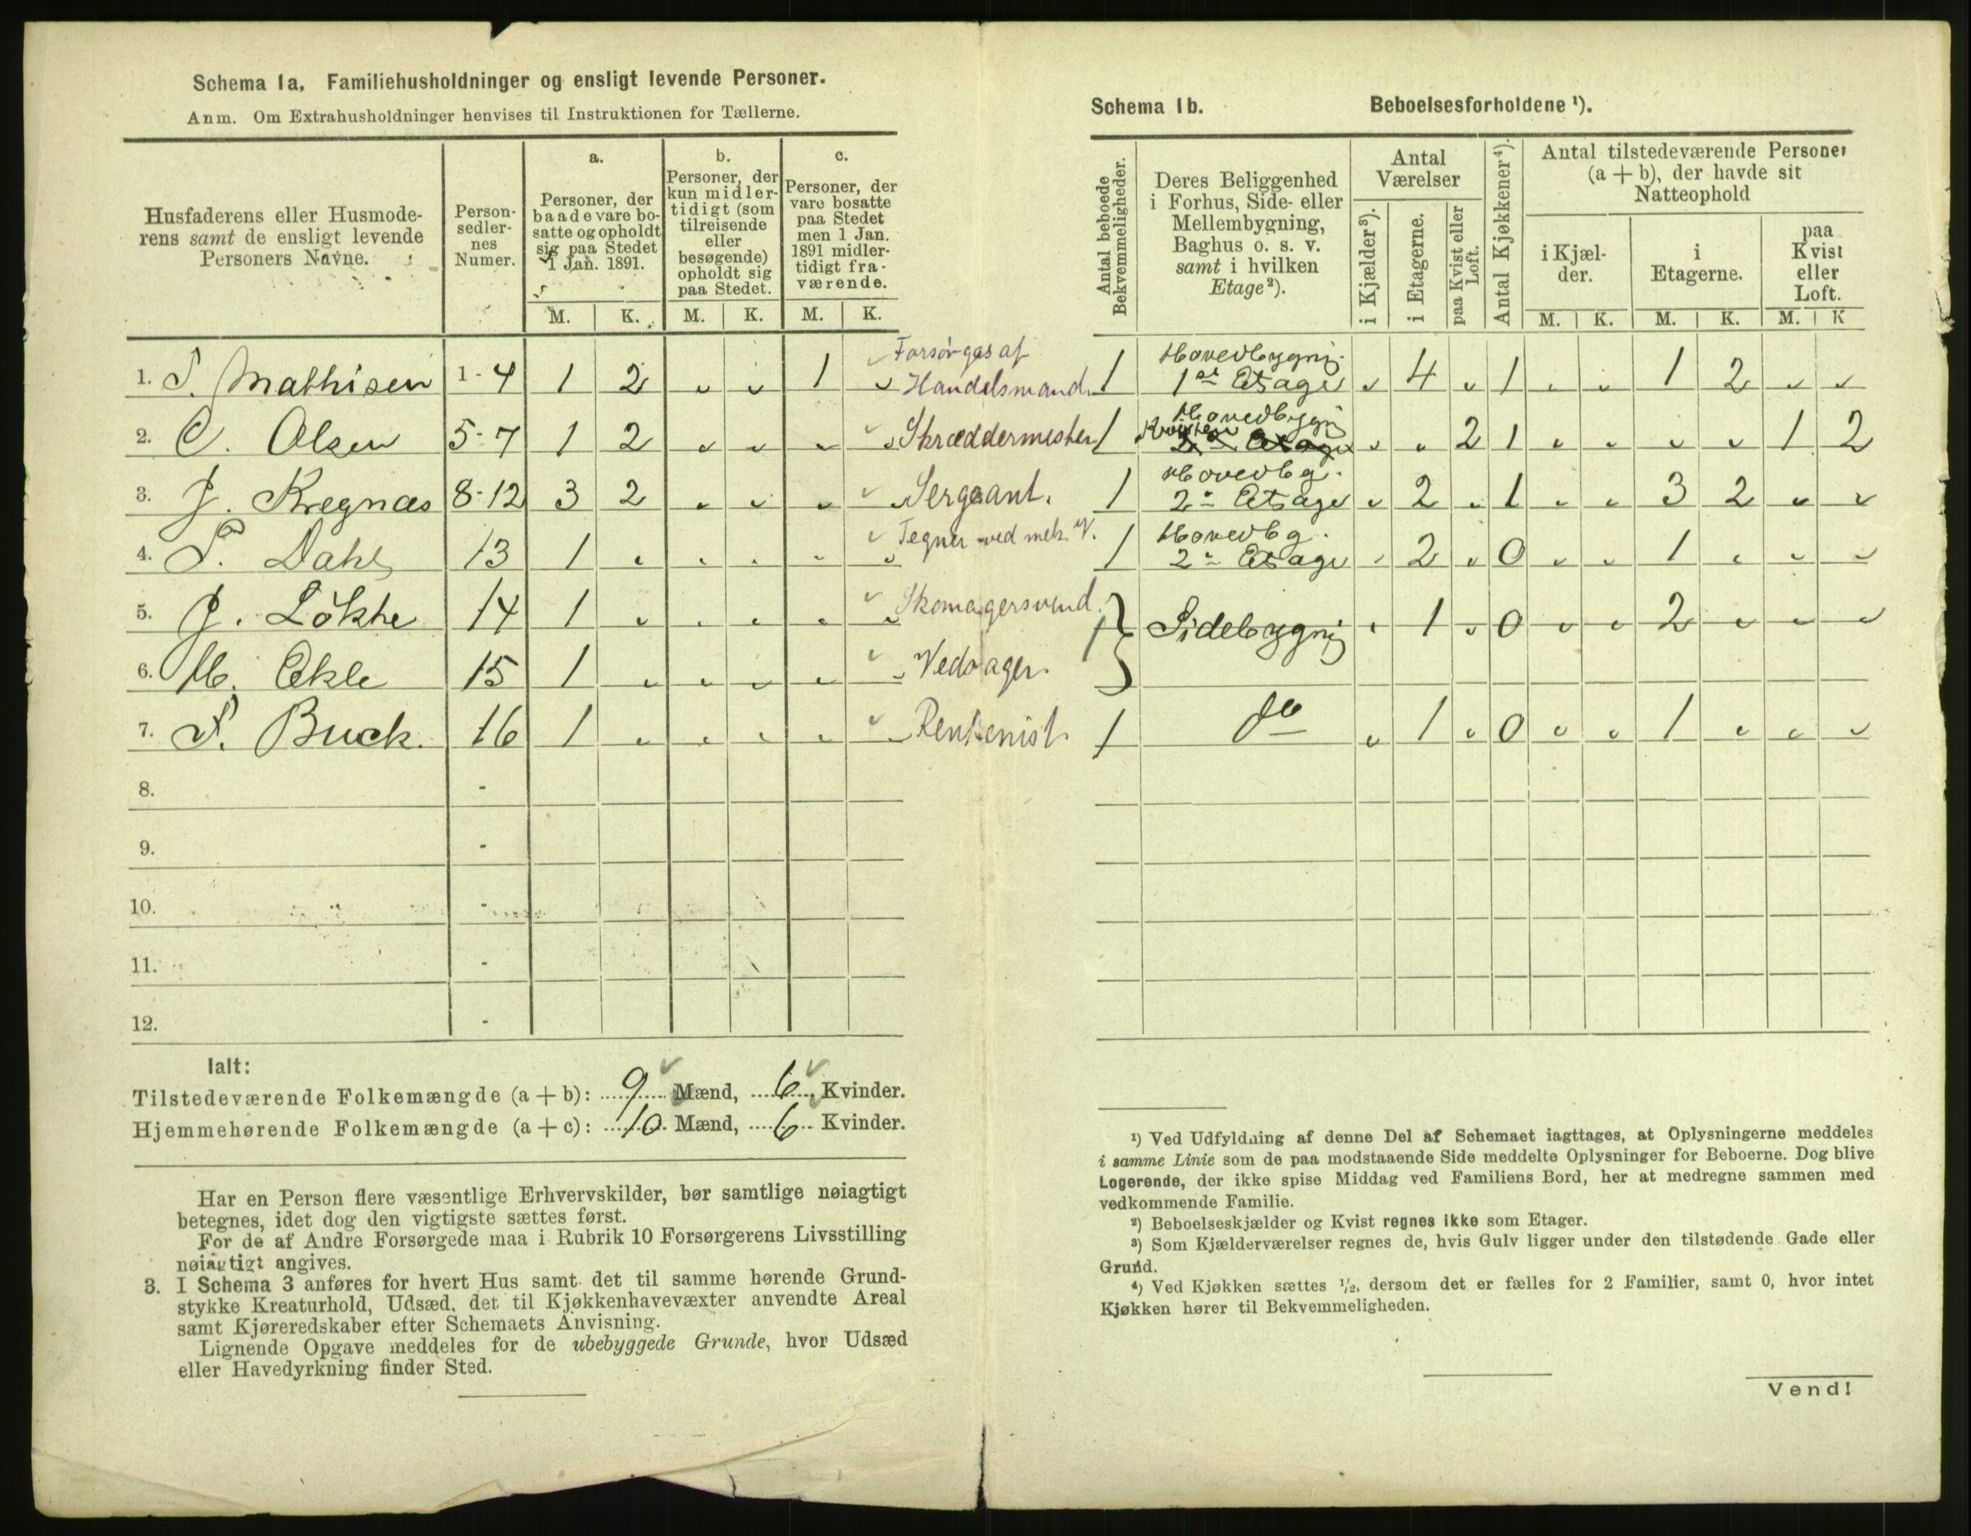 Schema 1a. Familiehusholdninger og ensligt levende Personer.
Anm. Om Extrahusholdninger henvises til Instruktionen for Tællerne.
Husfaderens eller Husmoderens samt de ensligt levende Personers Navne.
Personsedlernes Numer.
a. Personer, der baade vare bosatte og opholdt sig paa Stedet 1 Jan. 1891.
b. Personer, der kun midlertidigt (som tilreisende eller besøgende) opholdt sig paa Stedet.
c. Personer, der vare bosatte paa Stedet men 1 Jan. 1891 midlertidigt fraværende.
M. K. M. K. M. K.
1. P. Mathisen 1-4 1 2 „ „ 1 „ Forsørges af Handelsmand.
2. C. Olsen 5-7 1 2 „ „ „ „ Skræddermester
3. J. Kregnæs 8-12 3 2 „ „ „ „ Sergeant.
4. P. Dahl 13 1 „ „ „ „ „ Tegner ved mek. V.
5. J. Løkke 14 1 „ „ „ „ „ Skomagersvend.
6. M. Ekle 15 1 „ „ „ „ „ Vedsager.
7. P. Buck. 16 1 „ „ „ „ „ Rentenist
8. -
9. -
10. -
11. -
12. -
Ialt:
Tilstedeværende Folkemængde (a + b): 9 Mænd, 6 Kvinder.
Hjemmehørende Folkemængde (a + c): 10 Mænd, 6 Kvinder.
Har en Person flere væsentlige Erhvervskilder, bør samtlige nøiagtigt
betegnes, idet dog den vigtigste sættes først.
For de af Andre Forsørgede maa i Rubrik 10 Forsørgerens Livsstilling
nøiagtigt angives.
3. I Schema 3 anføres for hvert Hus samt det til samme hørende Grund-
stykke Kreaturhold, Udsæd, det til Kjøkkenhavevæxter anvendte Areal
samt Kjøreredskaber efter Schemaets Anvisning.
Lignende Opgave meddeles for de ubebyggede Grunde, hvor Udsæd
eller Havedyrkning finder Sted.
Schema 1b. Beboelsesforholdene ¹).
Antal beboede Bekvemmeligheder.
Deres Beliggenhed i Forhus, Side- eller Mellembygning, Baghus o. s. v. samt i hvilken Etage²).
Antal Værelser
i Kjælder³).
i Etagerne.
paa Kvist eller Loft.
Antal Kjøkkener⁴).
Antal tilstedeværende Personer (a + b), der havde sit Natteophold
i Kjælder.
i Etagerne.
paa Kvist eller Loft.
M. K. M. K. M. K
1 Hovedbygnig. 1ste Etage „ 4 „ 1 „ „ 1 2 „ „
1 Hovedbygnig Kvisten 2den Etage „ „ 2 1 „ „ „ „ 1 2
1 Hovedbg. 2den Etage „ 2 „ 1 „ „ 3 2 „ „
1 Hovedbg. 2den Etage „ 2 „ 0 „ „ 1 „ „ „
1 } Sidebygnig „ 1 „ 0 „ „ 2 „ „ „
1 do „ 1 „ 0 „ „ 1 „ „ „
¹) Ved Udfyldning af denne Del af Schemaet iagttages, at Oplysningerne meddeles
i samme Linie som de paa modstaaende Side meddelte Oplysninger for Beboerne. Dog blive
Logerende, der ikke spise Middag ved Familiens Bord, her at medregne sammen med
vedkommende Familie.
²) Beboelseskjælder og Kvist regnes ikke som Etager.
³) Som Kjælderværelser regnes de, hvis Gulv ligger under den tilstødende Gade eller
Grund.
⁴) Ved Kjøkken sættes ½, dersom det er fælles for 2 Familier, samt 0, hvor intet
Kjøkken hører til Bekvemmeligheden.
Vend!